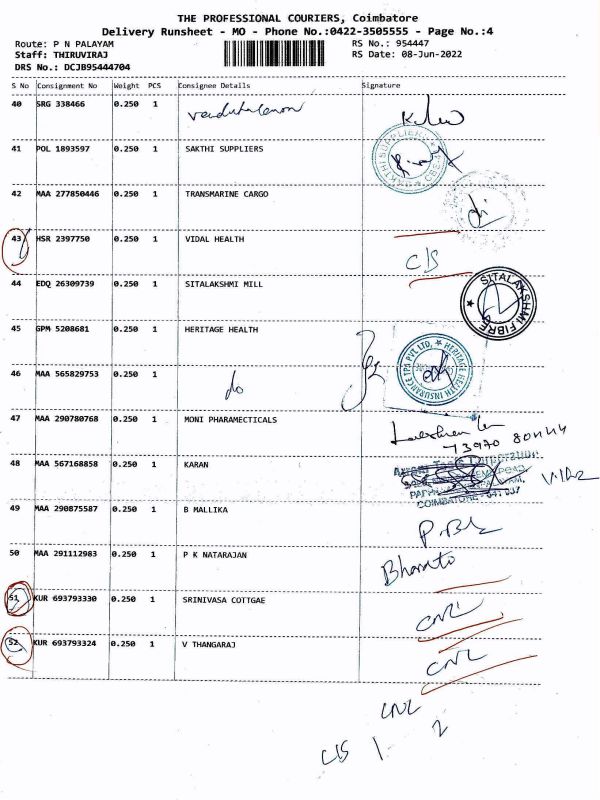 THE PROFESSIONAL COURIERS, Coimbatore
Delivery Runsheet - MO - Phone No.:0422-3505555 - Page No.:4
Route: P N PALAYAM RS No.: 954447
Staff: THIRUVIRAJ RS Date: 08-Jun-2022
DRS No.: DCJB95444704
S No Consignment No Weight PCS Consignee Details Signature
40 SRG 338466 0.250 1
41 POL 1893597 0.250 1 SAKTHI SUPPLIERS
SAKTHI SUPPLIERS
42 MAA 277850446 0.250 1 TRANSMARINE CARGO
43 HSR 2397750 0.250 1 VIDAL HEALTH
C/S
44 EDQ 26309739 0.250 1 SITALAKSHMI MILL
SITALAKSHMI FIBRE
45 GPM 5208681 0.250 1 HERITAGE HEALTH
HERITAGE HEALTH INSURANCE TPA PVT. LTD.
46 MAA 565829753 0.250 1 do
47 MAA 290780768 0.250 1 MONI PHARAMECTICALS
48 MAA 567168858 0.250 1 KARAN
COIMBATORE - 641 037
49 MAA 290875587 0.250 1 B MALLIKA
50 MAA 291112983 0.250 1 P K NATARAJAN
51 KUR 693793330 0.250 1 SRINIVASA COTTGAE
CNL
52 KUR 693793324 0.250 1 V THANGARAJ
CNL
CNL 2
C/S 1